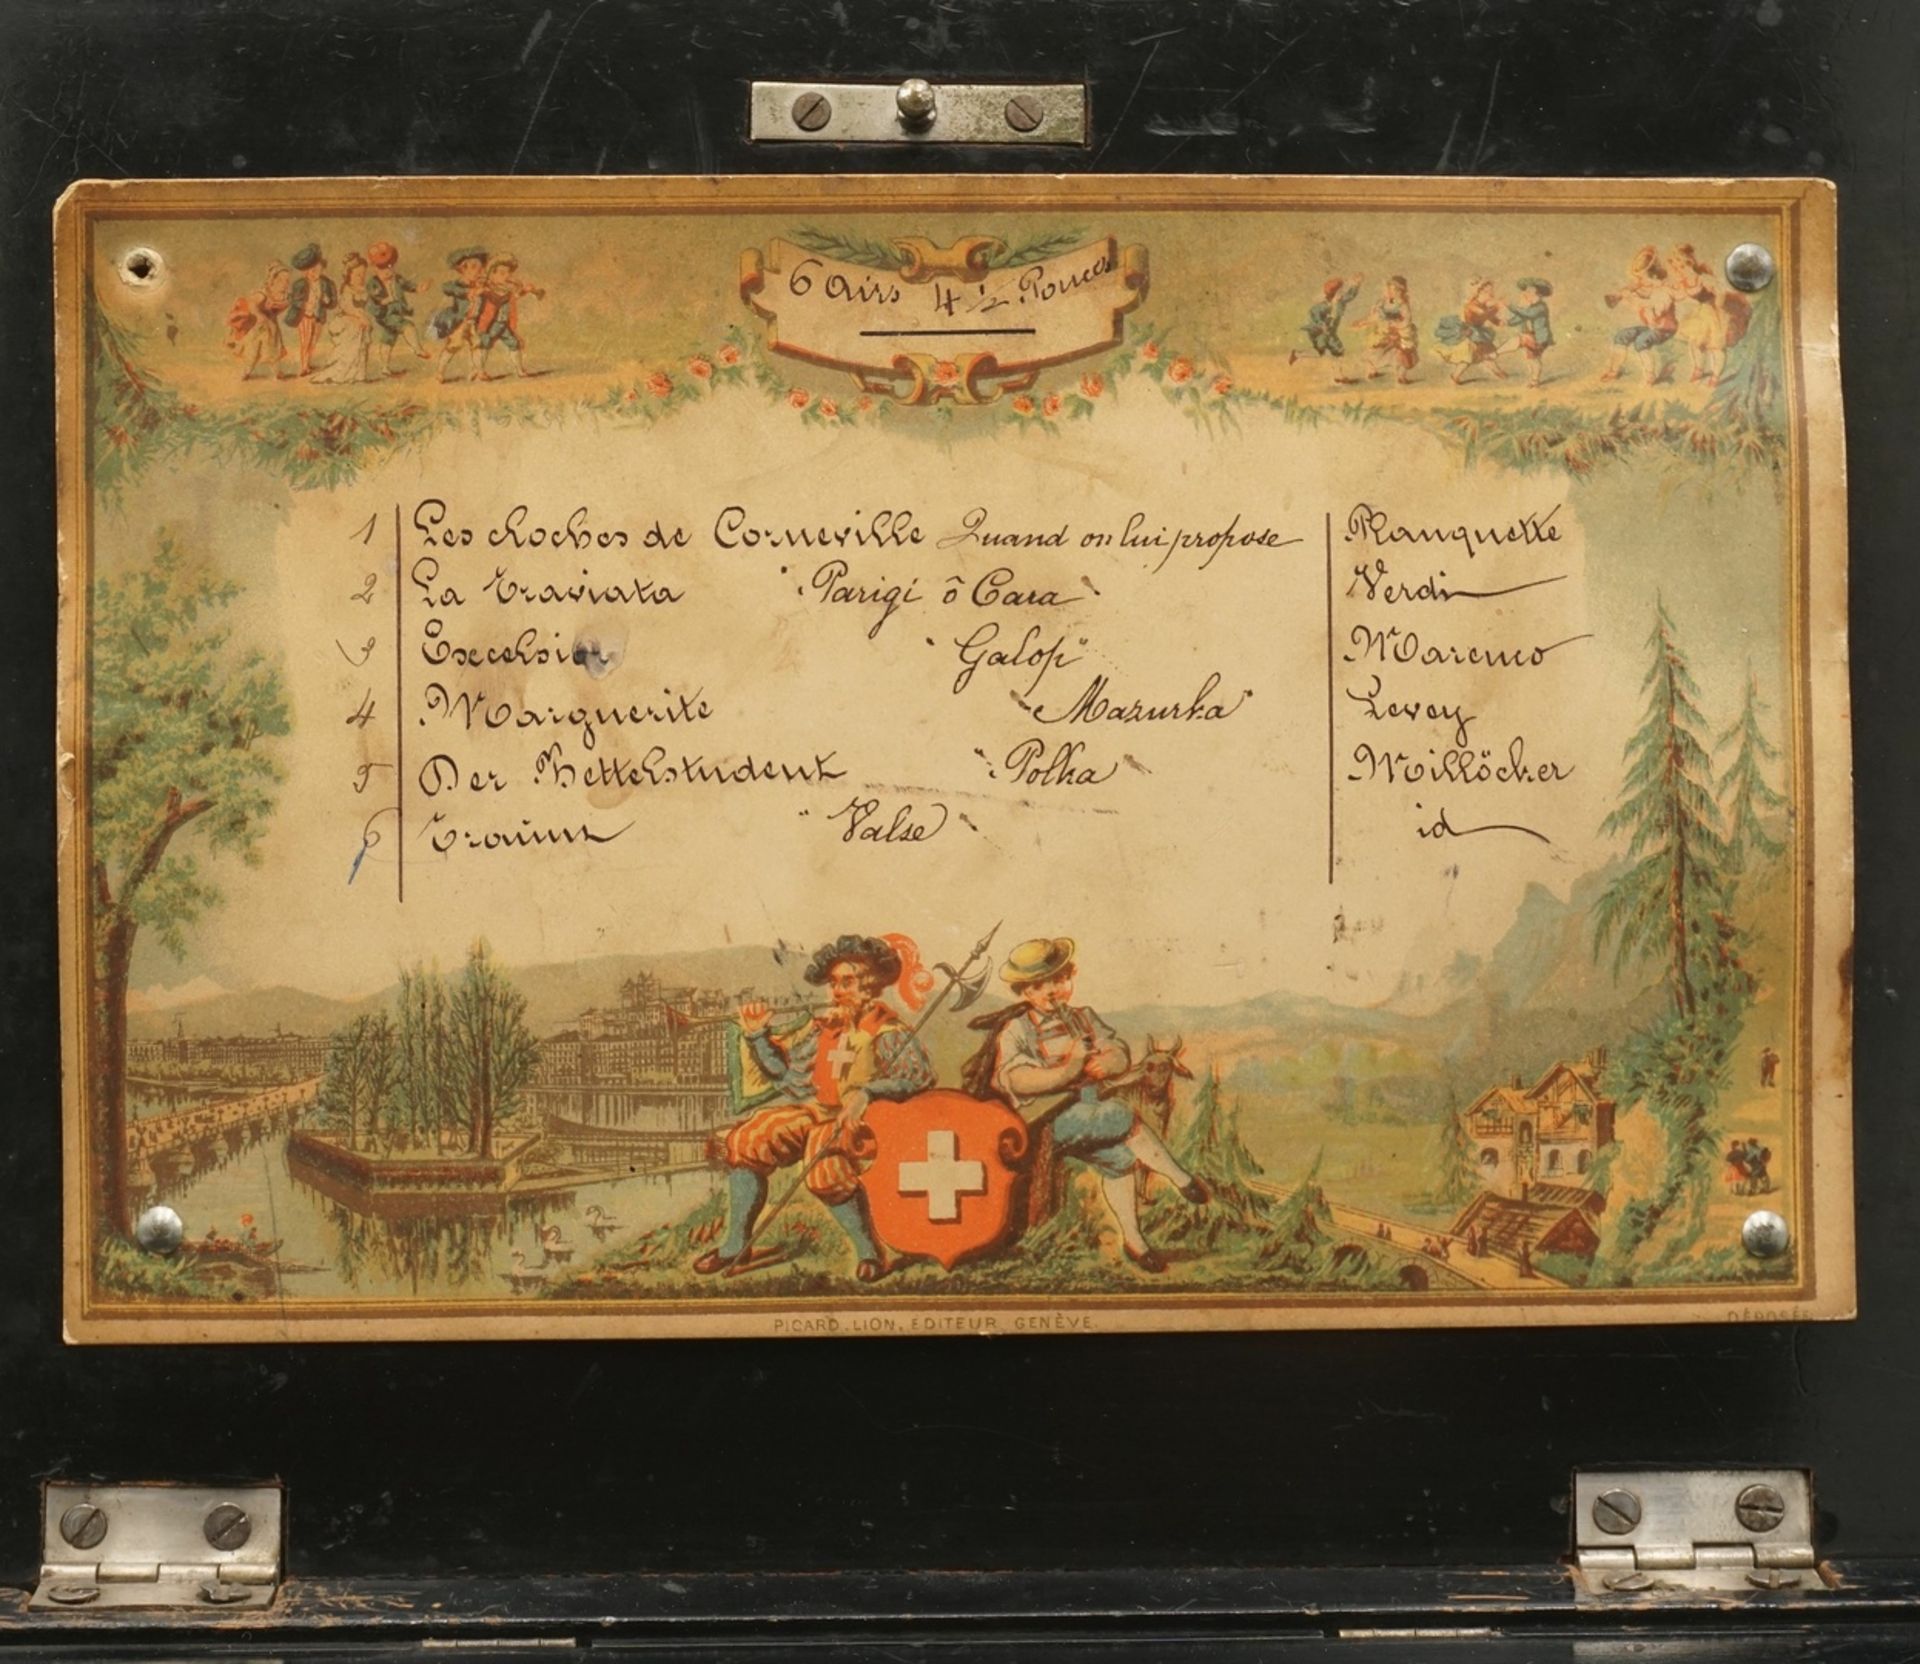 6 Airs 4 ½ Pouces
1 Les cloches de Corneville Quand on lui propose Planquette
2 La Traviata "Parigi ô Cara" Verdi
3 Excelsior "Galop" Marenco
4 Marguerite "Mazurka" Levey
5 Der Bettelstudent "Polka" Millöcker
6 "Valse" id
PICARD-LION, EDITEUR GENÈVE.
DÉPOSÉE